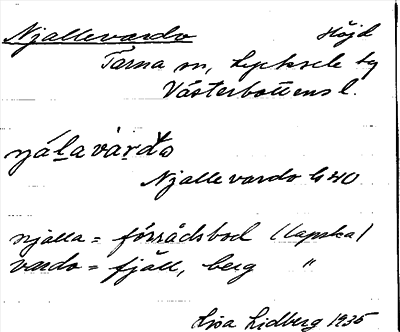 Njallevardo Höjd
Tärna sn, Lycksele tg
Västerbottens l.
njálavárdo
Njallevardo h 40
njalla = förrådsbod (lapska)
vardo = fjäll, berg "
Lisa Lidberg 1935